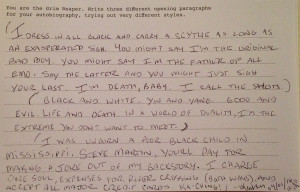 You are the Grim Reaper. Write three different opening paragraphs
for your autobiography, trying out very different styles.
I DRESS IN ALL BLACK AND CARRY A SCYTHE AS LONG AS
AN EXASPERATED SIGH. YOU MIGHT SAY I'M THE ORIGINAL
BAD BOY. YOU MIGHT SAY I'M THE FATHER OF ALL
EMO. SAY THE LATTER AND YOU MIGHT JUST SIGH
YOUR LAST. I'M DEATH, BABY. I CALL THE SHOTS
BLACK AND WHITE. YIN AND YANG. GOOD AND
EVIL. LIFE AND DEATH. IN A WORLD OF DUALITY, I'M THE
EXTREME YOU DON'T WANT TO MEET.
I WAS UNBORN A POOR BLACK CHILD IN
MISSISSIPPI. STEVE MARTIN, YOU'LL PAY FOR
MAKING A JOKE OUT OF MY BACKSTORY. I CHARGE
ONE SOUL, EXPENSES FOR RIVER CROSSING (BOTH WAYS), AND
ACCEPT ALL MAJOR CREDIT CARDS. KA-CHING!